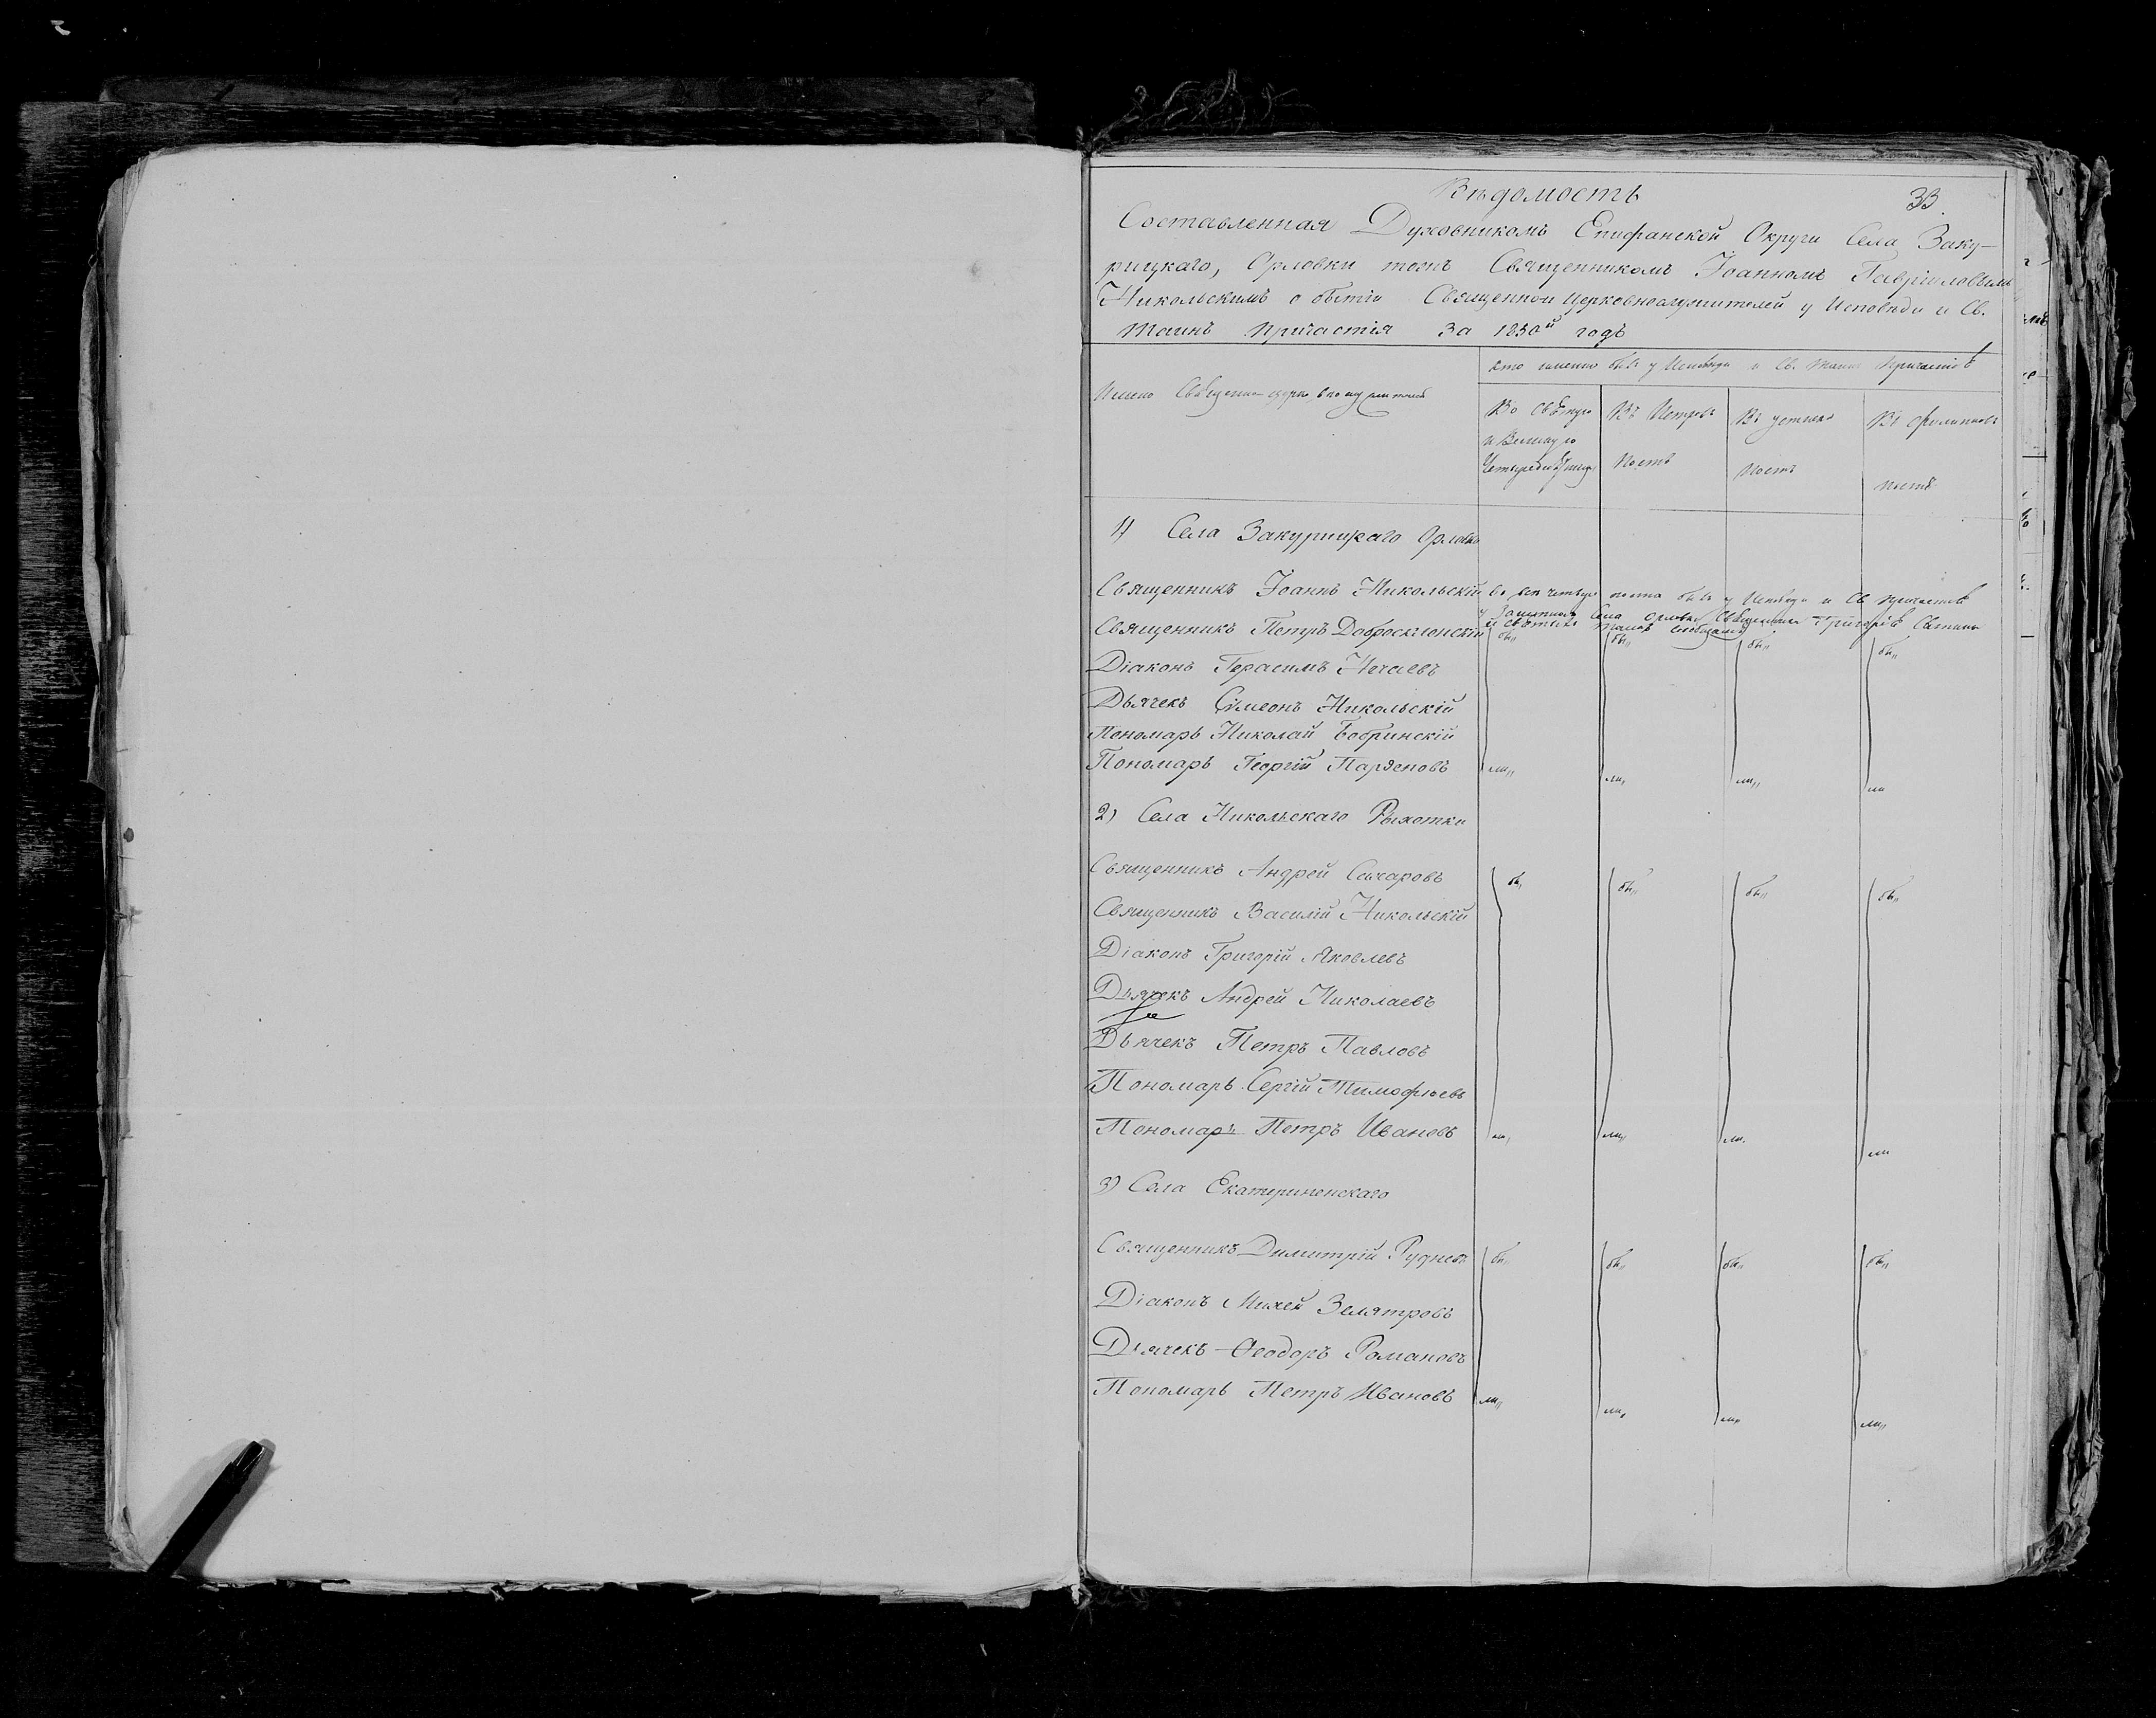 Вѣдомость
33.
Составленная Духовникомъ Епифанской Округи Села Заку-
рицкаго, Орловки тожъ Священникомъ Іоанномъ Гавріиловымъ
Никольскимъ о бытіи Священно и церковнослужителей у Исповѣди и Св.
Таинъ Причастія за 1850й годъ
Кто именно былъ у Исповѣди и Св. Таинъ Причастія
Имена Священно церковнослужителей
Во Святую
и Великую
Четыредесятницу
Въ Петровъ
Постъ
Въ Успенскій
Постъ
Въ Филиповъ
Постъ
1) Села Закурицкаго Орловки
Священникъ Іоаннъ Никольскій во все четыре поста былъ у Исповѣди и Св. Причастія
у Села Орловки Священника Григорія
и святыхъ Таинъ
Священникъ Петръ Доброскленскій
бы,, бы,, бы,, бы,,
Діаконъ Герасимъ Нечаевъ
Дьячекъ Сѵмеонъ Никольскій
Пономарь Николай Бобринскій
Пономарь Георгій Парѳеновъ
ли,, ли,, ли,, ли
2) Села Никольскаго Рыхотки
Священникъ Андрей Сахаровъ
бы,, бы,, бы,, бы,,
Священникъ Василій Никольскій
Діаконъ Григорій Яковлевъ
Дьячекъ Андрей Николаевъ
Дьячекъ Петръ Павловъ
Пономарь Сергій Тимофѣевъ
Пономарь Петръ Ивановъ
ли,, ли,, ли. ли
3) Села Екатериненскаго
Священникъ Димитрій Рудневъ
бы,, бы,, бы,, бы,,
Діаконъ Михей Землтровъ
Дьячекъ Ѳеодоръ Романовъ
Пономарь Петръ Ивановъ
ли,, ли,, ли,, ли,,